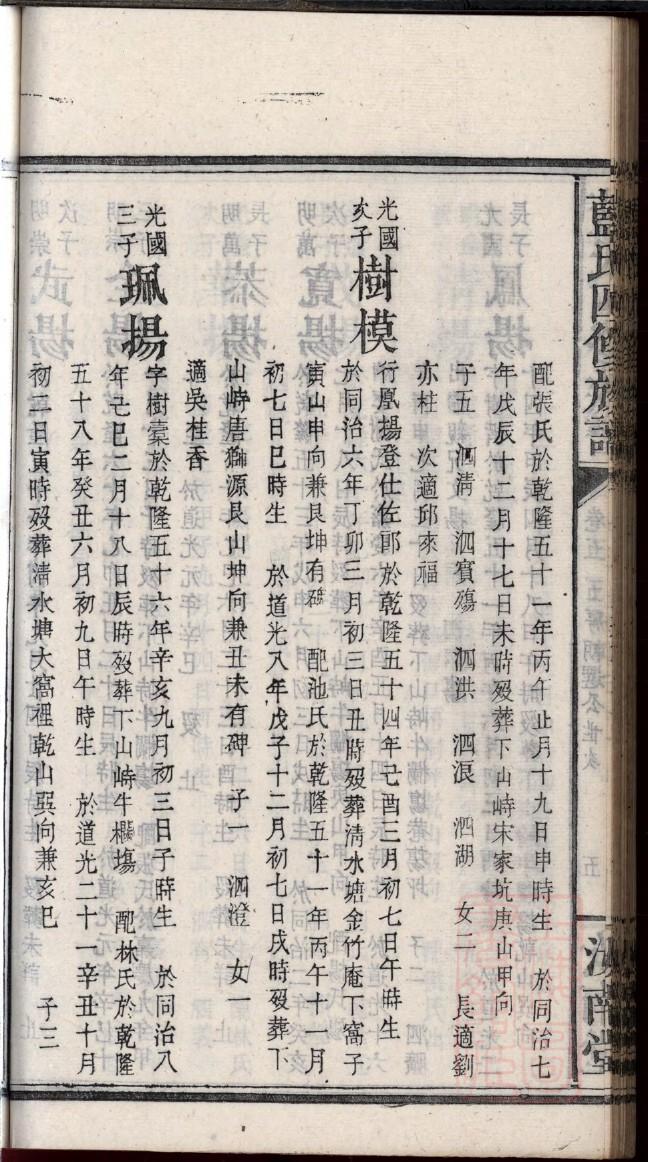 藍氏四修族譜
卷五 五
汝南堂
配張氏於乾隆五十一年丙午正月十九日申時生 於同治七
年戊辰十二月十七日未時歿葬下山崎宋家坑庚山甲向
子五 泗清 泗賓殤 泗洪 泗浪 泗湖 女二 長適劉
亦柱 次適邱來福
光國次子 樹模 行鳳揚登仕佐郎於乾隆五十四年己酉三月初七日午時生
於同治六年丁卯三月初三日丑時歿葬清水塘金竹庵下窩子
寅山申向兼艮坤有碑 配池氏於乾隆五十一年丙午十一月
初七日巳時生 於道光八年戊子十二月初七日戌時歿葬下
山崎唐獅源艮山坤向兼丑未有碑 子一 泗澄 女一
適吳桂香
光國三子 珮揚 字樹藁於乾隆五十六年辛亥九月初三日子時生 於同治八
年己巳二月十八日辰時歿葬下山崎牛欄塲 配林氏於乾隆
五十八年癸丑六月初九日午時生 於道光二十一辛丑十月
初三日寅時歿葬清水塘大窩裡乾山巽向兼亥巳 子三